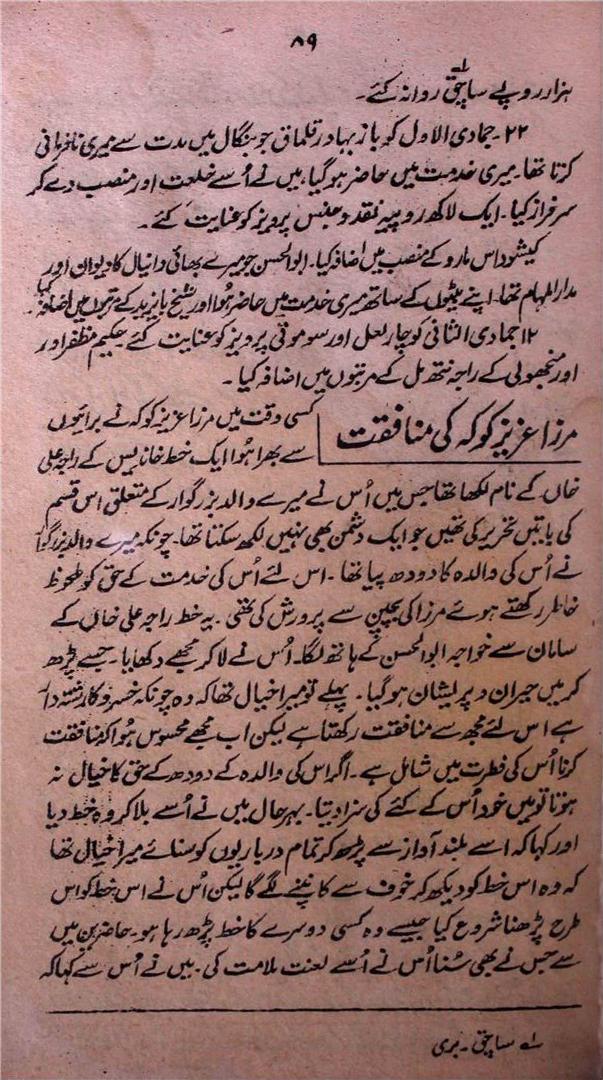 ۸۹
ہزار روپے ساچقؔ روانہ کئے۔
۲۲۔ جمادی الاول کو باز بہادر قلماق جو بنگال میں مدت سے میری نافرمانی
کرتا تھا۔ میری خدمت میں حاضر ہو گیا، میں نے اُسے خلعت اور منصب دے کر
سرفراز کیا۔ ایک لاکھ روپیہ نقد و جنس پرویز کو عنایت کئے۔
کیشو داس مارو کے منصب میں اضافہ کیا۔ ابوالحسن جو میرے بھائی دانیال کا دیوان اور
مدار المہام تھا۔ اپنے بیٹوں کے ساتھ میری خدمت میں حاضر ہُوا اور شیخ بایزید کے مرتبوں میں اضافہ کیا
۱۲ جمادی الثانی کو چار لعل اور سو موتی پرویز کو عنایت کئے حکیم مظفر اور
اور منجھولی کے راجہ نتھ مل کے مرتبوں میں اضافہ کیا۔
مرزا عزیز کوکہ کی منافقت
کسی وقت میں مرزا عزیز کوکہ نے برائیوں
سے بھرا ہُوا ایک خط خاندیس کے راجہ علی
خاں کے نام لکھا تھا جس میں اُس نے میرے والد بزرگوار کے متعلق اس قسم
کی باتیں تحریر کی تھیں جو ایک دشمن بھی نہیں لکھ سکتا تھا۔ چونکہ میرے والد بزرگوا
نے اُس کی والدہ کا دودھ پیا تھا۔ اس لئے اُس کی خدمت کے حق کو ملحوظ
خاطر رکھتے ہوئے مرزا کی بچپن سے پرورش کی تھی۔ یہ خط راجہ علی خاں کے
سامان سے خواجہ ابوالحسن کے ہاتھ لگا۔ اُس نے لا کر مجھے دکھایا۔ جسے پڑھ
کر میں حیران و پریشان ہو گیا۔ پہلے تو میرا خیال تھا کہ وہ چونکہ خسرو کا رشتہ دا
ہے اس لئے مجھ سے منافقت رکھتا ہے لیکن اب مجھے محسوس ہُوا کہ منافقت
کرنا اُس کی فطرت میں شامل ہے۔ اگر اس کی والدہ کے دودھ کے حق کا خیال نہ
ہوتا تو میں خود اُس کے کئے کی سزا دیتا۔ بہرحال میں نے اُسے بلا کر وہ خط دیا
اور کہا کہ اسے بلند آواز سے پڑھ کر تمام درباریوں کو سنائے میرا خیال تھا
کہ وہ اس خط کو دیکھ کر خوف سے کانپنے لگے گا لیکن اُس نے اس خط کو اس
طرح پڑھنا شروع کیا جیسے وہ کسی دوسرے کا خط پڑھ رہا ہو۔ حاضرین میں
سے جس نے بھی سُنا اُس نے اُسے لعنت ملامت کی۔ میں نے اُس سے کہا کہ
لہ ساچق۔ بری